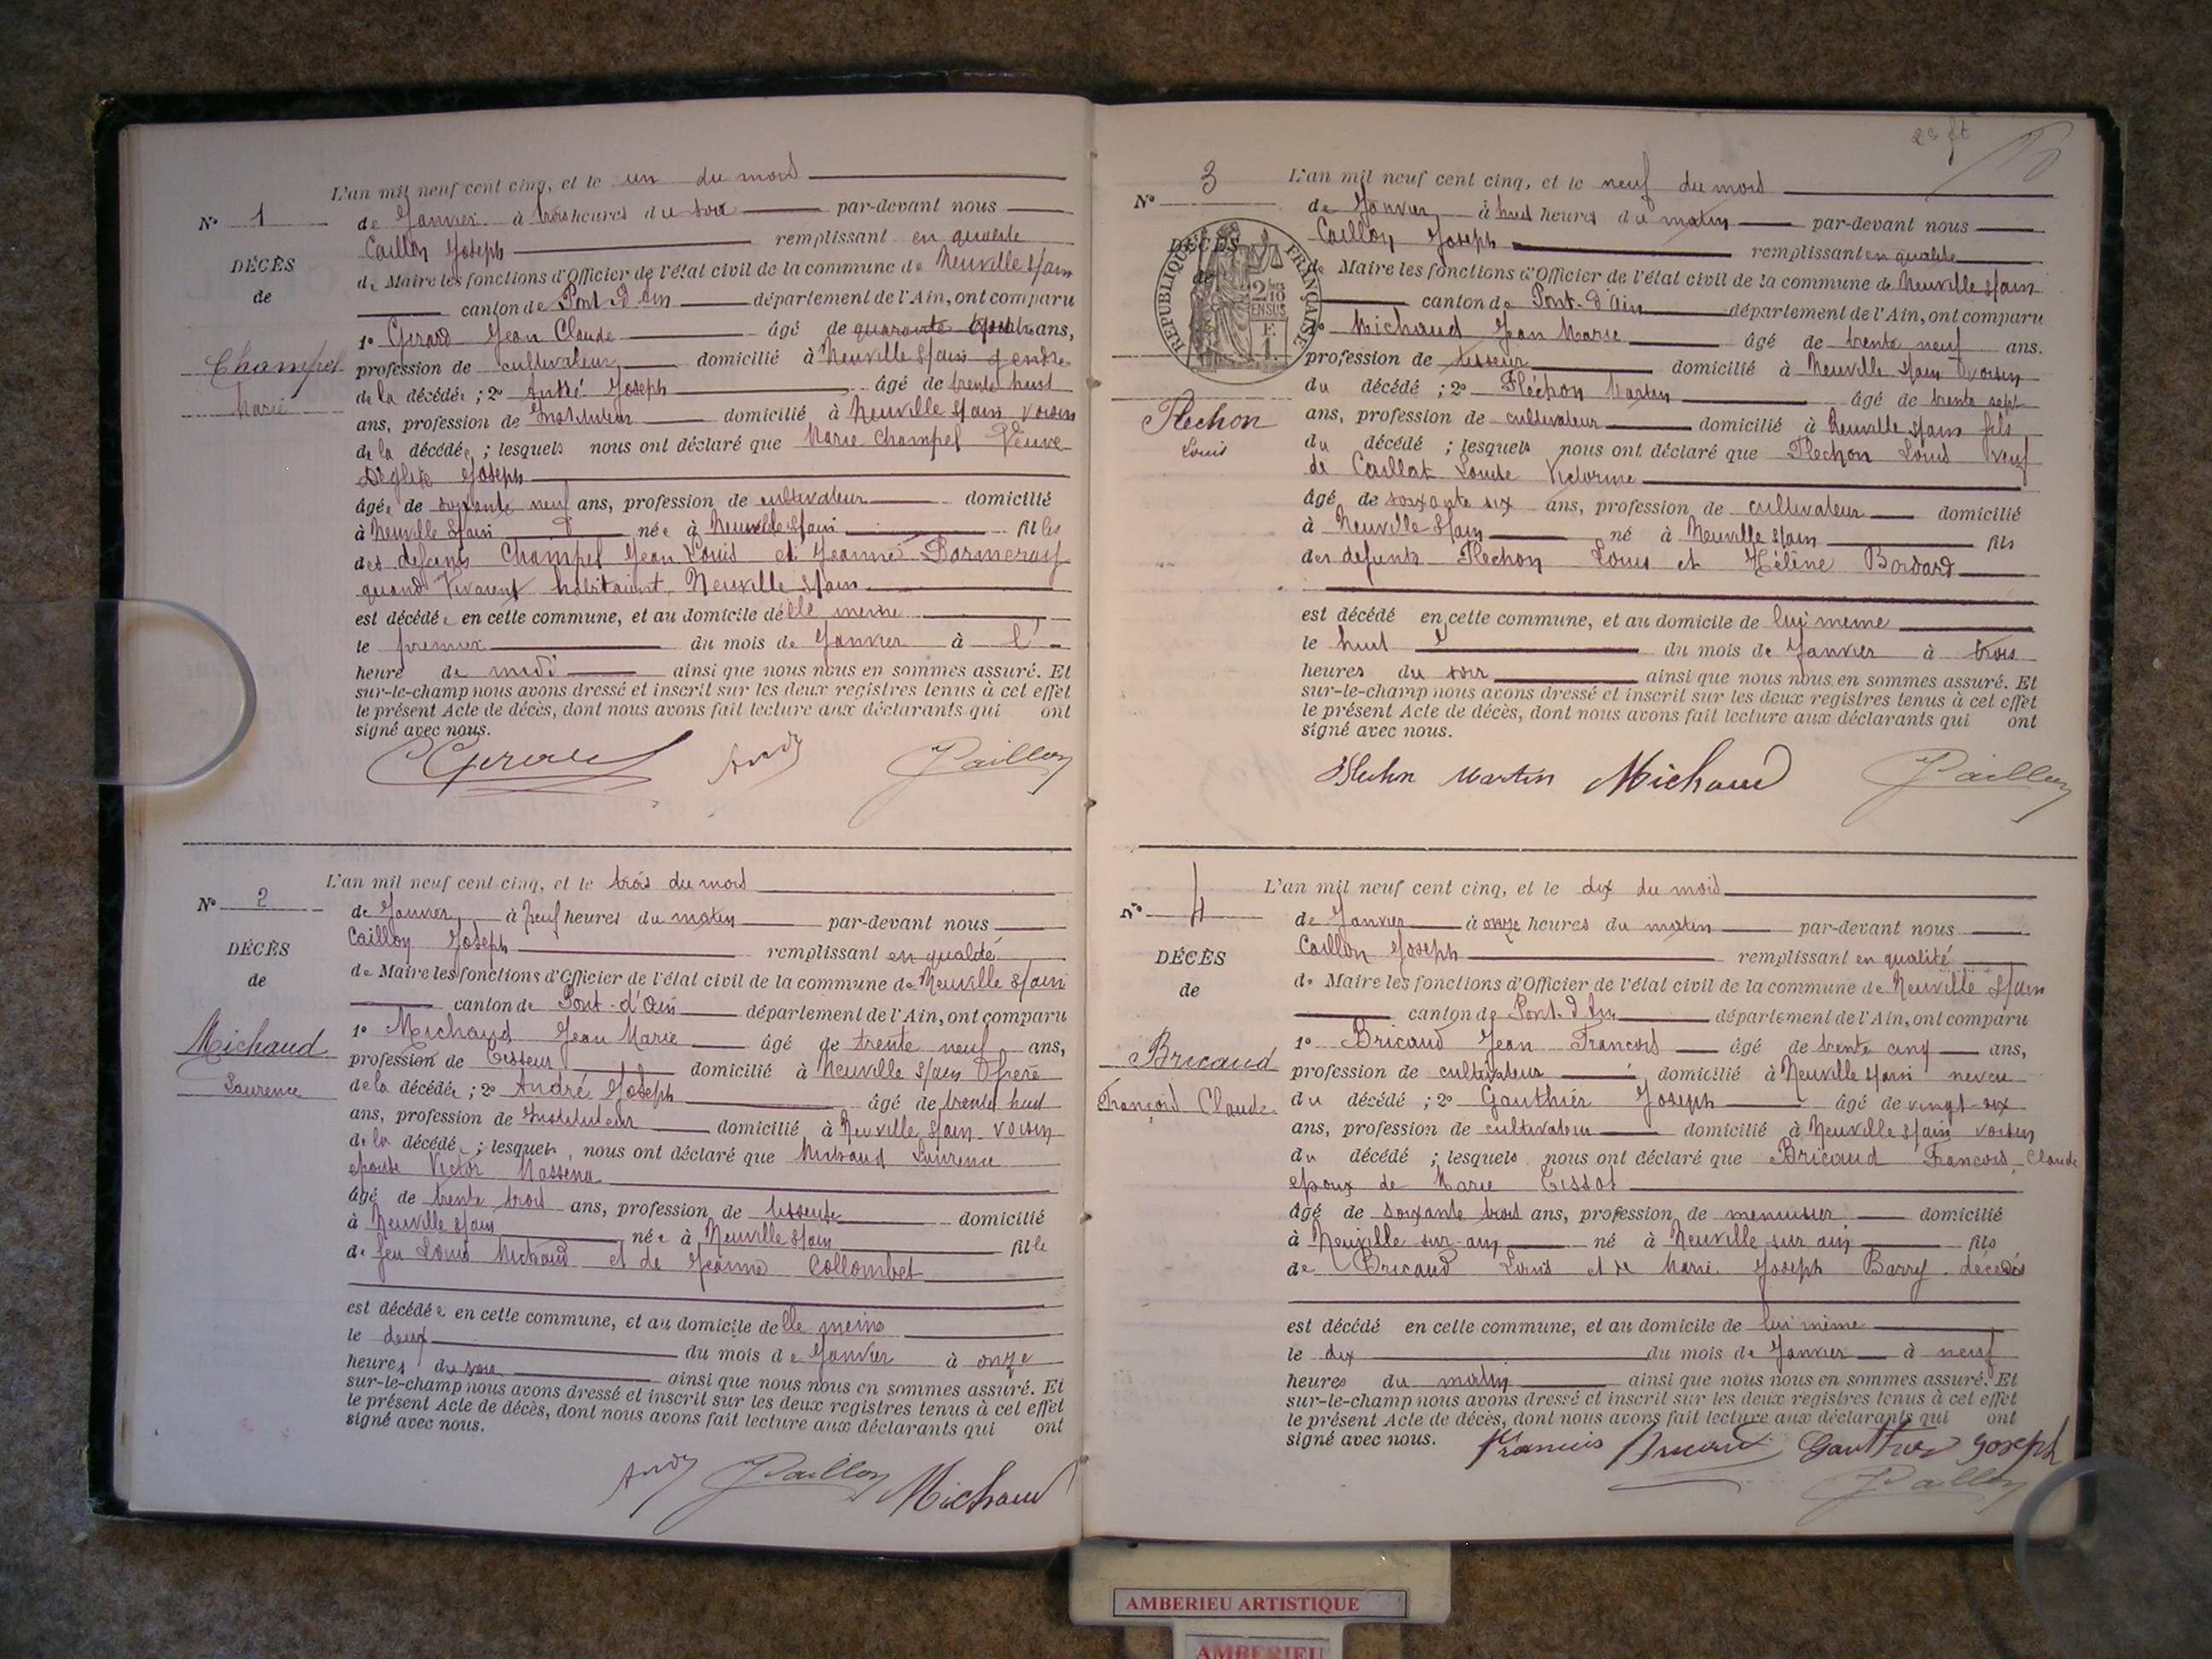 L'an mil neuf cent cinq, et le un du mois
N° 1
de Janvier à trois heures du soir par-devant nous
Caillon Joseph remplissant en qualité
DÉCÈS
de Maire les fonctions d'Officier de l'état civil de la commune de Neuville s/ain
de
canton de Pont d'Ain département de l'Ain, ont comparu
1° Gerard Jean Claude âgé de quarante ans,
Champel
profession de cultivateur domicilié à Neuville s/ain gendre
Marie
de la décédée ; 2° André Joseph âgé de trente huit
ans, profession de Instituteur domicilié à Neuville s/ain voisin
de la décédée ; lesquels nous ont déclaré que Marie Champel Veuve
Joseph
âgée de soixante neuf ans, profession de cultivateur domicilié
à Neuville s/ain née à Neuville s/ain fille
des defunts Champel Jean Louis et Jeanne Dormeray
quand vivaient habitaient Neuville s/ain
est décédée en cette commune, et au domicile d'elle meme
le premier du mois de Janvier à l'
heure de midi ainsi que nous nous en sommes assuré. Et
sur-le-champ nous avons dressé et inscrit sur les deux registres tenus à cet effet
le présent Acte de décès, dont nous avons fait lecture aux déclarants qui ont
signé avec nous.
CGerard André JCaillon
L'an mil neuf cent cinq, et le trois du mois
N° 2
de Janvier à neuf heures du matin par-devant nous
Caillon Joseph remplissant en qualité
DÉCÈS
de Maire les fonctions d'Officier de l'état civil de la commune de Neuville s/ain
de
canton de Pont-d'Ain département de l'Ain, ont comparu
1° Michaud Jean Marie âgé de trente neuf ans,
Michaud
profession de Tisseur domicilié à Neuville s/ain frère
Laurence
de la décédée ; 2° André Joseph âgé de trente huit
ans, profession de Instituteur domicilié à Neuville s/ain voisin
de la décédée ; lesquels nous ont déclaré que Michaud Laurence
epouse Victor Massena
âgé de trente trois ans, profession de tisseuse domicilié
à Neuville s/ain née à Neuville s/ain fille
de feu Louis Michaud et de Jeanne Collombet
est décédée en cette commune, et au domicile de elle meme
le deux du mois de Janvier à onze
heures du soir ainsi que nous nous en sommes assuré. Et
sur-le-champ nous avons dressé et inscrit sur les deux registres tenus à cet effet
le présent Acte de décès, dont nous avons fait lecture aux déclarants qui ont
signé avec nous.
André JCaillon Michaud
L'an mil neuf cent cinq, et le neuf du mois
N° 3
de Janvier à huit heures du matin par-devant nous
Caillon Joseph remplissant en qualité
DÉCÈS
RÉPUBLIQUE FRANÇAISE
de Maire les fonctions d'Officier de l'état civil de la commune de Neuville s/ain
canton de Pont-d'Ain département de l'Ain, ont comparu
1° Michaud Jean Marie âgé de trente neuf ans.
profession de tisseur domicilié à Neuville s/ain voisin
du décédé ; 2° Fléchon Martin âgé de trente sept
Flechon
ans, profession de cultivateur domicilié à Neuville s/ain fils
Louis
du décédé ; lesquels nous ont déclaré que Flechon Louis veuf
de Caillat Louise Victorine
âgé de soixante six ans, profession de cultivateur domicilié
à Neuville s/ain né à Neuville s/ain fils
des defunts Flechon Louis et Hélène Bordard
est décédé en cette commune, et au domicile de lui meme
le huit du mois de Janvier à trois
heures du soir ainsi que nous nous en sommes assuré. Et
sur-le-champ nous avons dressé et inscrit sur les deux registres tenus à cet effet
le présent Acte de décès, dont nous avons fait lecture aux déclarants qui ont
signé avec nous.
Martin Michaud JCaillon
L'an mil neuf cent cinq, et le dix du mois
N° 4
de Janvier à onze heures du matin par-devant nous
Caillon Joseph remplissant en qualité
DÉCÈS
de Maire les fonctions d'Officier de l'état civil de la commune de Neuville s/ain
de
canton de Pont-d'Ain département de l'Ain, ont comparu
1° Bricaud Jean François âgé de trente cinq ans,
Bricaud
profession de cultivateur domicilié à Neuville s/ain neveu
François Claude
du décédé ; 2° Gauthier Joseph âgé de vingt six
ans, profession de cultivateur domicilié à Neuville s/ain voisin
du décédé ; lesquels nous ont déclaré que Bricaud François Claude
epoux de Marie Tissot
âgé de soixante trois ans, profession de menuisier domicilié
à Neuville sur ain né à Neuville sur ain fils
de Bricaud Louis et de Marie Joseph Barry décédés
est décédé en cette commune, et au domicile de lui même
le dix du mois de Janvier à neuf
heures du matin ainsi que nous nous en sommes assuré. Et
sur-le-champ nous avons dressé et inscrit sur les deux registres tenus à cet effet
le présent Acte de décès, dont nous avons fait lecture aux déclarants qui ont
signé avec nous. Francois Bricaud Gauthier Joseph
JCaillon
AMBERIEU ARTISTIQUE
AMBERIEU